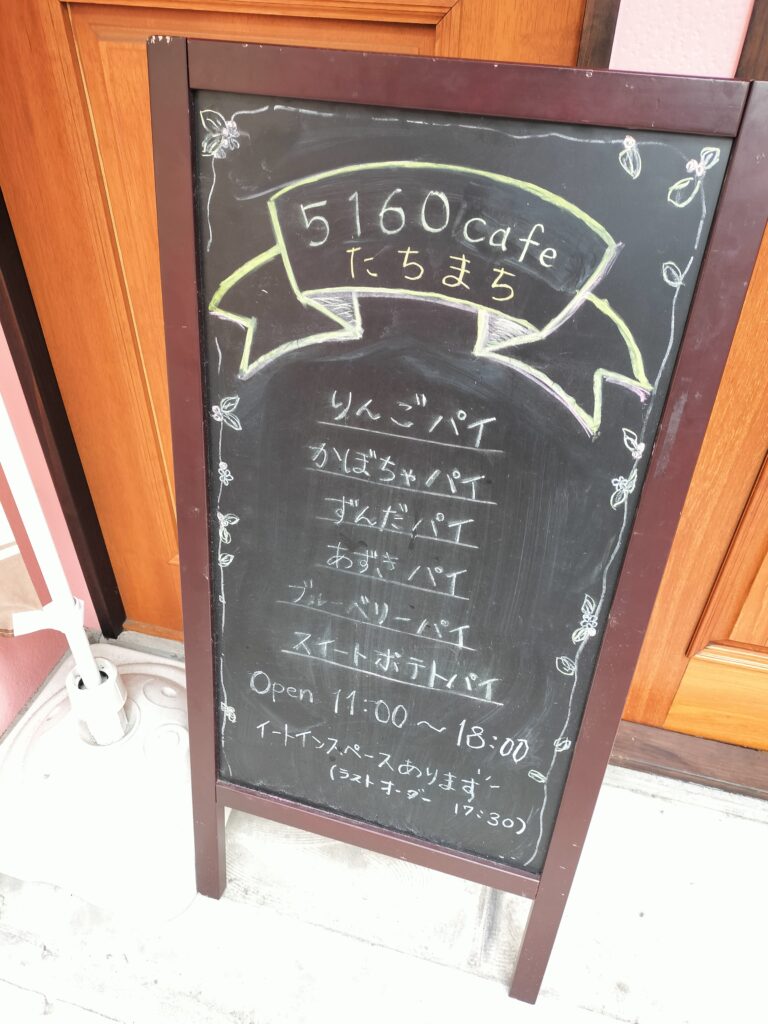 5160cafe
たちまち
りんごパイ
かぼちゃパイ
ずんだパイ
あずきパイ
ブルーベリーパイ
スイートポテトパイ
Open 11:00～18:00
イートインスペースあります
(ラストオーダー 17:30)